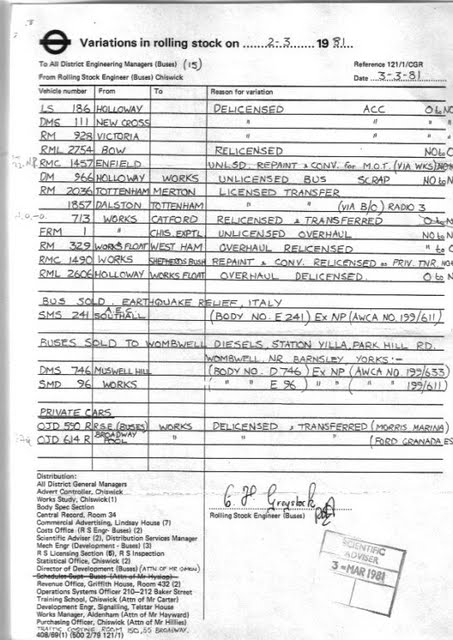 Variations in rolling stock on 2-3- 1981.
To All District Engineering Managers (Buses) (15) Reference 121/1/CGR
From Rolling Stock Engineer (Buses) Chiswick Date 3-3-81
Vehicle number From To Reason for variation
LS 186 HOLLOWAY DELICENSED ACC O to N
DMS 111 NEW CROSS " " "
RM 928 VICTORIA " " "
RML 2754 BOW RELICENSED N to O
RMC 1457 ENFIELD UNLSD. REPAINT & CONV. for M.O.T. (VIA WKS)
DM 966 HOLLOWAY WORKS UNLICENSED BUS SCRAP N to N
RM 2036 TOTTENHAM MERTON LICENSED TRANSFER
1857 DALSTON TOTTENHAM " " (VIA B/O) RADIO 3
713 WORKS CATFORD RELICENSED & TRANSFERRED
FRM 1 " CHIS. EXPTL UNLICENSED OVERHAUL N to N
RM 329 WORKS FLOAT WEST HAM OVERHAUL RELICENSED " to O
RMC 1490 WORKS SHEPHERDS BUSH REPAINT & CONV. RELICENSED as PRIV. TNR
RML 2606 HOLLOWAY WORKS FLOAT OVERHAUL DELICENSED. O to N
BUS SOLD. EARTHQUAKE RELIEF, ITALY
SMS 241 A.E.C. SOUTHALL (BODY NO. E 241) Ex NP (AWCA NO. 199/611)
BUSES SOLD TO WOMBWELL DIESELS, STATION VILLA, PARK HILL RD.
WOMBWELL. NR BARNSLEY, YORKS:-
DMS 746 MUSWELL HILL (BODY NO. D 746) Ex NP (AWCA NO. 199/633)
SMD 96 WORKS ( " " E 96) " ( " " 199/611)
PRIVATE CARS
OJD 590 R R.S.E (BUSES) WORKS DELICENSED & TRANSFERRED (MORRIS MARINA)
OJD 614 R BROADWAY POOL " " " (FORD GRANADA ES
Distribution:
All District General Managers
Advert Controller, Chiswick
Works Study, Chiswick (1)
Body Spec Section
Central Record, Room 34
Commercial Advertising, Lindsay House (7)
Costs Office (R S Engr- Buses) (2)
Scientific Adviser (2), Distribution Services Manager
Mech Engr (Development - Buses) (3)
R S Licensing Section (6), R S Inspection
Statistical Office, Chiswick (2)
Director of Development (Buses) (ATTN OF MR OMEN)
Schedules Dept - Buses (Attn of Mr Hyslop)
Revenue Office, Griffith House, Room 432 (2)
Operations Systems Officer 210-212 Baker Street
Training School, Chiswick (Attn of Mr Carter)
Development Engr, Signalling, Telstar House
Works Manager, Aldenham (Attn of Mr Hayward)
Purchasing Officer, Chiswick (Attn of Mr Hillies)
ROOM 150, 55 BROADWAY.
408/69(1) (500 2/79 121/1)
Rolling Stock Engineer (Buses)
SCIENTIFIC
ADVISER
3-MAR 1981